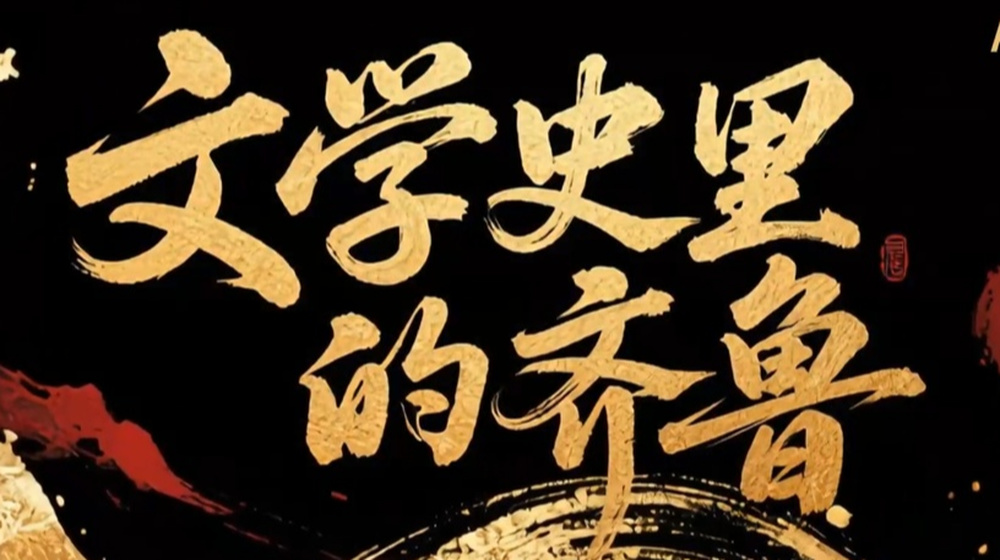 文学史里
的齐鲁